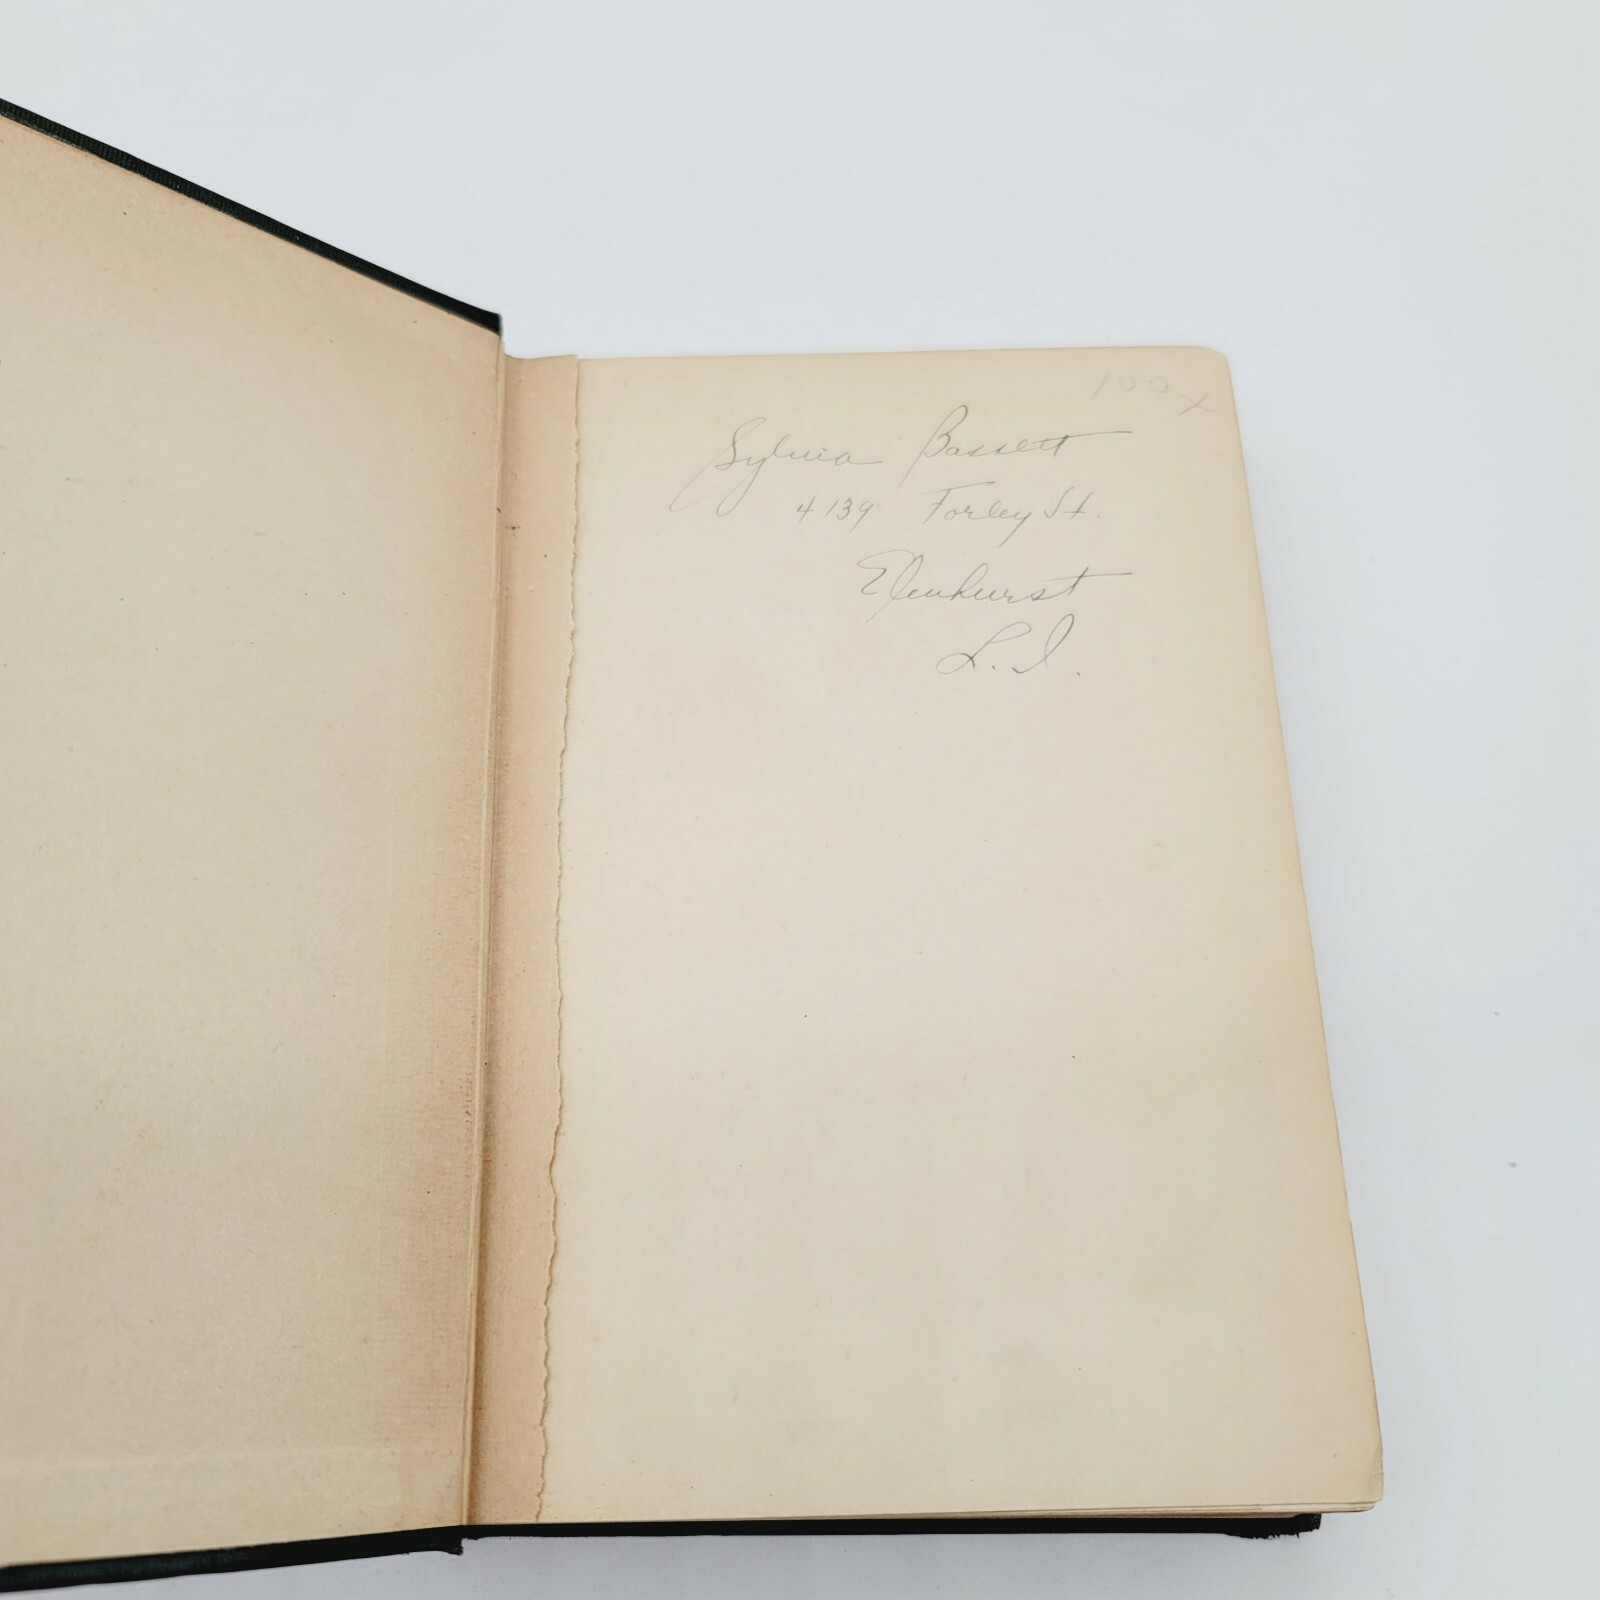 100x
Sylvia Bassett
4139 Forley St.
Elmhurst
L.I.